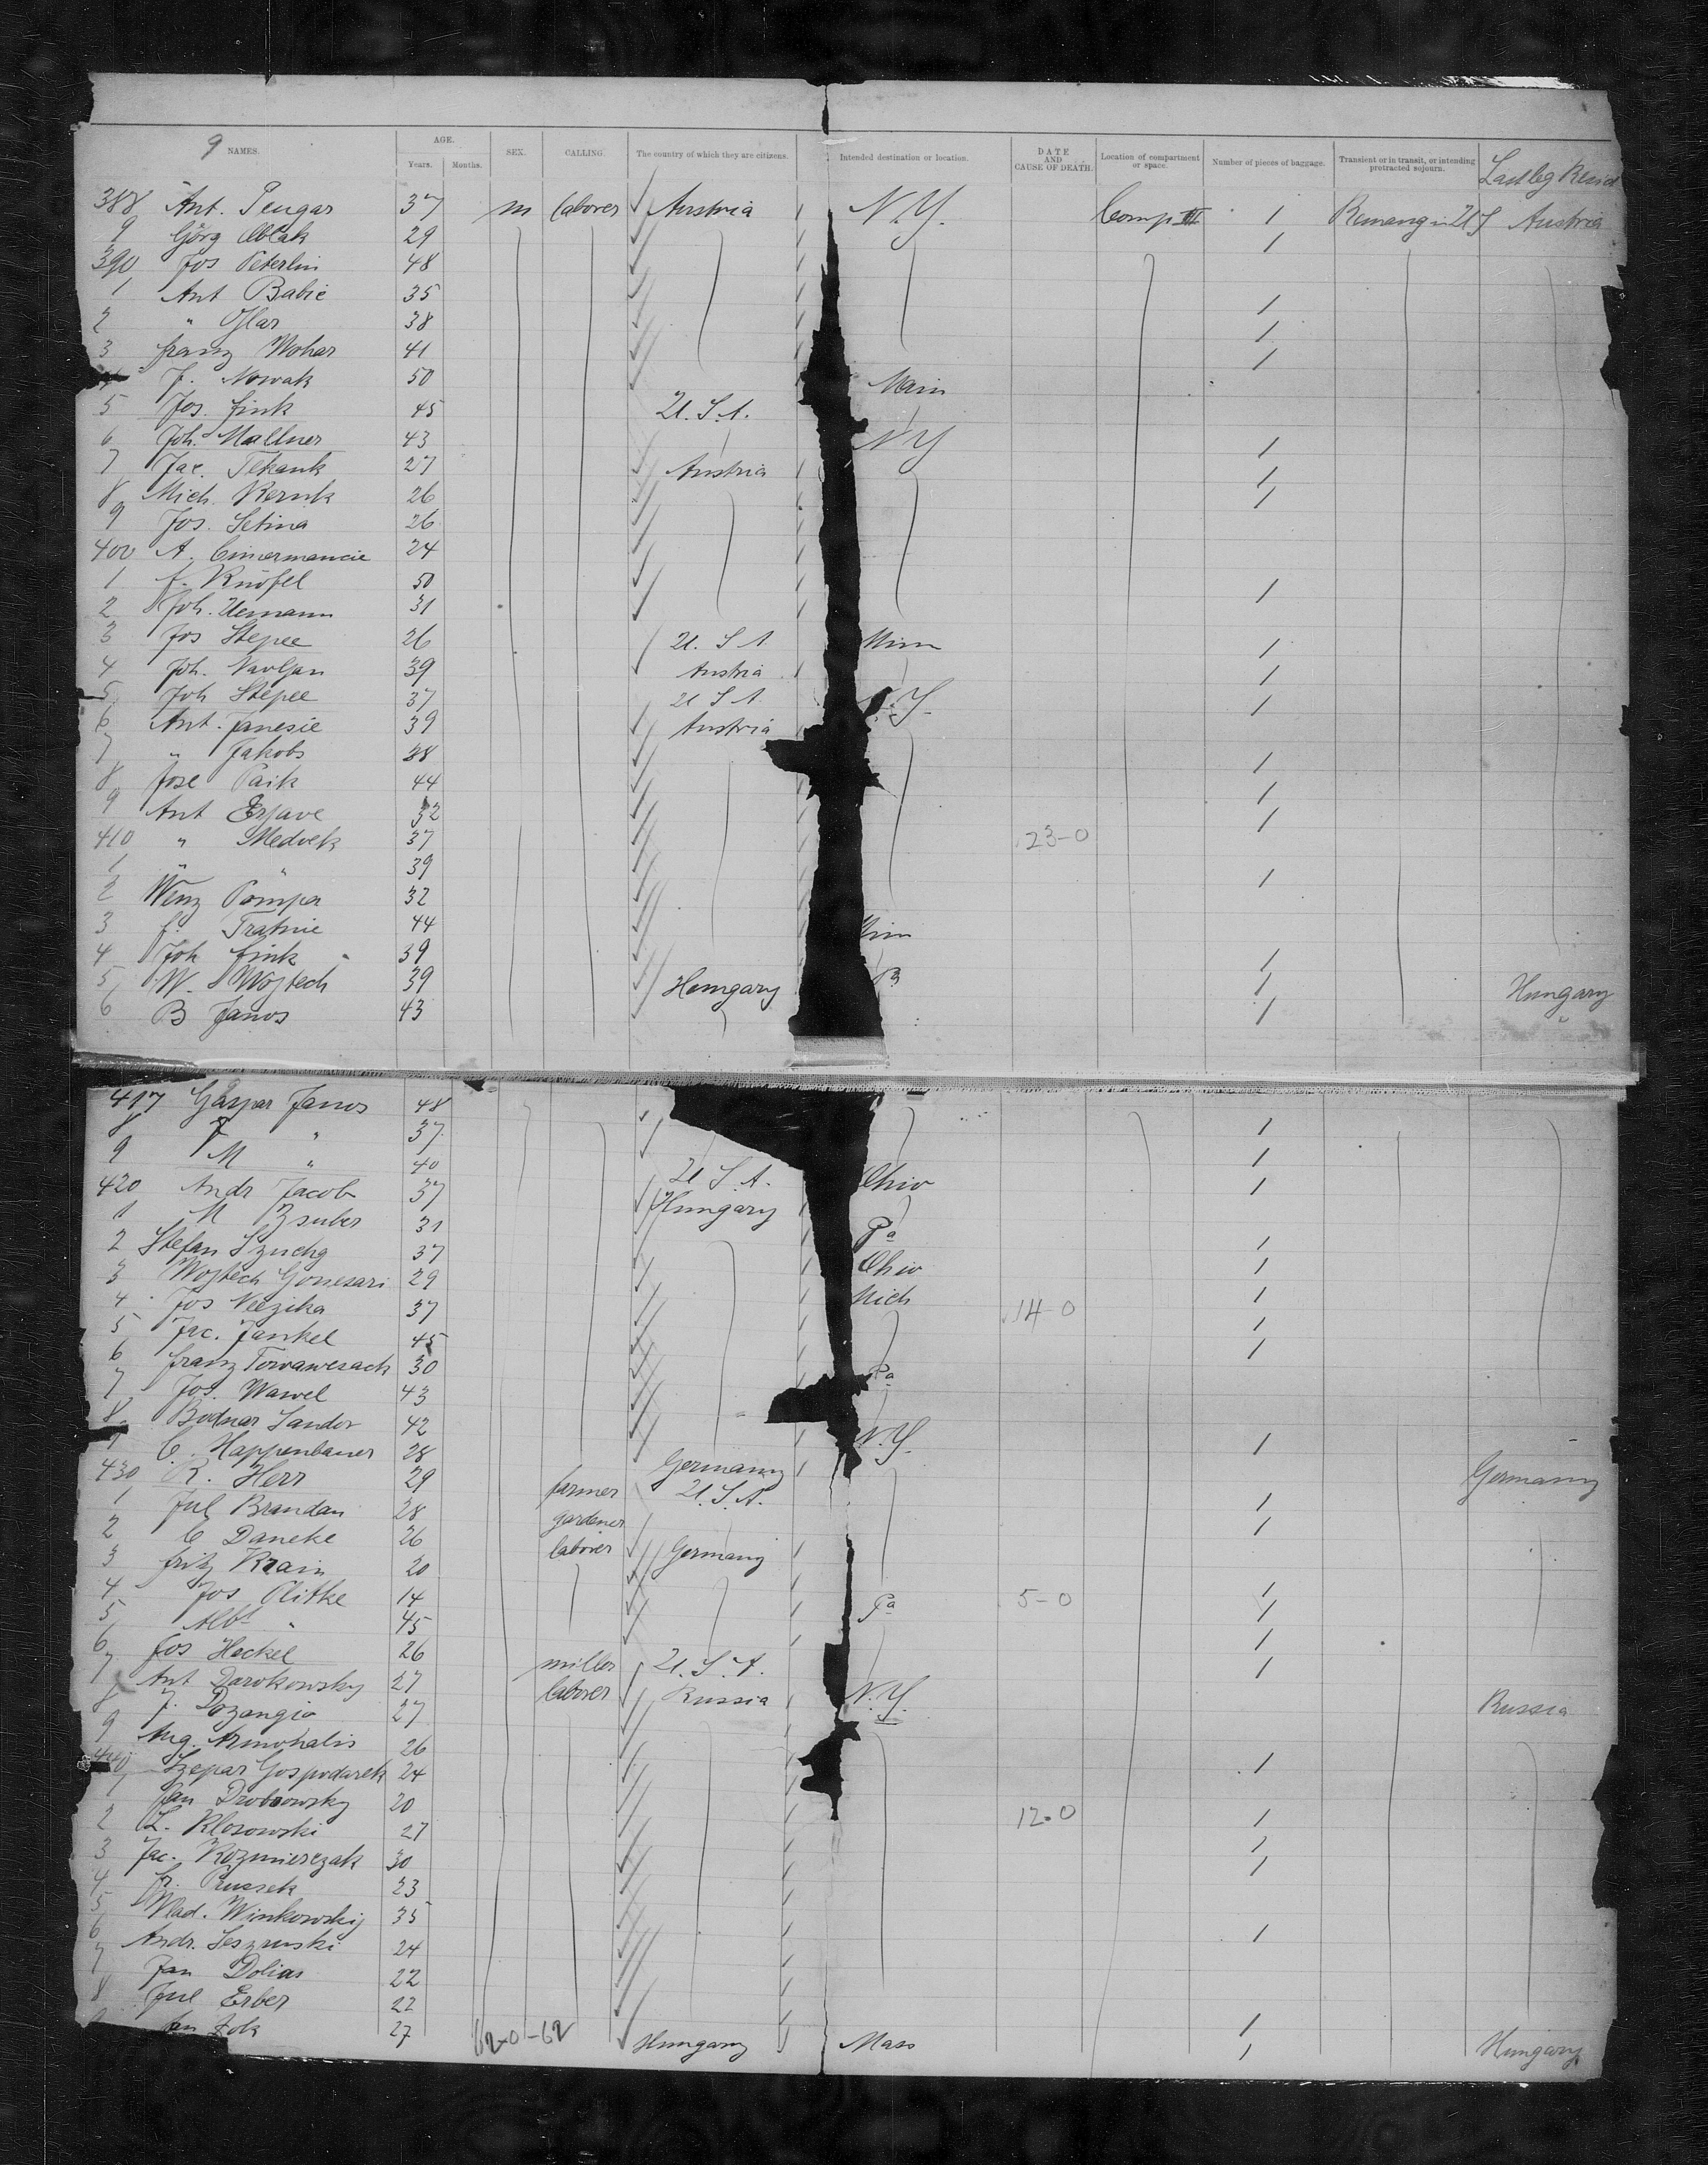 9 NAMES. AGE. Years. Months. SEX. CALLING. The country of which they are citizens. Intended destination or location. DATE AND CAUSE OF DEATH. Location of compartment or space. Number of pieces of baggage. Transient or in transit, or intending protracted sojourn. Last leg Resid
388 Ant. Pengar 37 m laborer Austria N.Y. Comp III 1 Austria
9 Görg Oblak 29 1
390 Jos Peterlin 48
1 Ant Babic 35 1
2 " Oflar 38 1
3 franz Mohar 41 1
J. Nowak 50 Main
5 Jos. Fink 45 U.S.A.
6 Joh. Mallner 43 N Y 1
7 Jac. Tekauk 27 Austria 1
8 Mich. Kernk 26 1
9 Jos. Setina 26
400 A. Cimermancic 24
1 f. Knöfel 50 1
2 Joh. Uemann 31
3 Jos Stepec 26 U. S A Minn 1
4 Joh. 39 Austria 1
5 Joh Stepec 37 U S A Y. 1
6 Ant. Janesic 39 Austria
7 " Jakobs 38 1
8 Jose Paik 44 1
9 Ant Erjave 32 1
410 " Medvek 37 23-0
1 " " 39 1
2 Wenz Pömpa 32
3 f. Tratnic 44
4 Joh Fink 39 1
5 W. Wojtech 39 Hungary 1 Hungary
6 B Janos 43 1 "
417 Gaspar Janos 48 1
8 F " 37 1
9 M " 40 U.S.A. Ohio 1
420 Andr Jacob 37 Hungary
1 M Zsuber 31 Pa 1
2 Stefan Szuchy 37 Ohio 1
3 Wojtech Gonesari 29 Mich 1
4 Jos Nezika 37 14-0 1
5 Jac. Jankel 45 1
6 franz Towawesack 30 Pa
7 Jos. Wawel 43
8 Bodnar Sandor 42 N.Y. 1
9 C. Happenbauer 28 Germany Germany
430 R. Herr 29 farmer U.S.A. 1
1 Jul Brandan 28 gardener 1
2 C Daneke 26 laborer Germany
3 fritz Krain 20 1
4 Jos Olitke 14 Pa 5-0 1
5 Albt " 45 1
6 Jos Heckel 26 miller U.S.A. 1
7 Ant Darokowsky 27 laborer Russia N.Y. Russia
8 J. Dozangio 27
9 Aug. Armonalis 26 1
440 Szepar Gospodarek 24
1 Jan Drobrowsky 20 12-0 1
2 L. Klosowski 27 1
3 Jac. Kozmierczak 30 1
4 Fr. Russek 23
5 Wlad. Winkowskij 35 1
6 Andr. Leszenski 24
7 Jan Dolias 22
8 Jul Erber 22 1
Jan Zok 27 62-0-62 Hungary Mass 1 Hungary